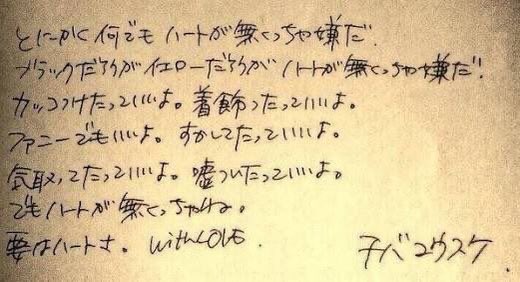 とにかく何でもハートが無くっちゃ嫌だ.
ブラックだろうがイエローだろうがハートが無くっちゃ嫌だ.
カッコつけたっていいよ。着飾ったっていいよ。
ファニーでもいいよ。すかしてたっていいよ。
気取ってたっていいよ。嘘ついたっていいよ。
でもハートが無くっちゃね。
要はハートさ。with LOVE.
チバユウスケ.